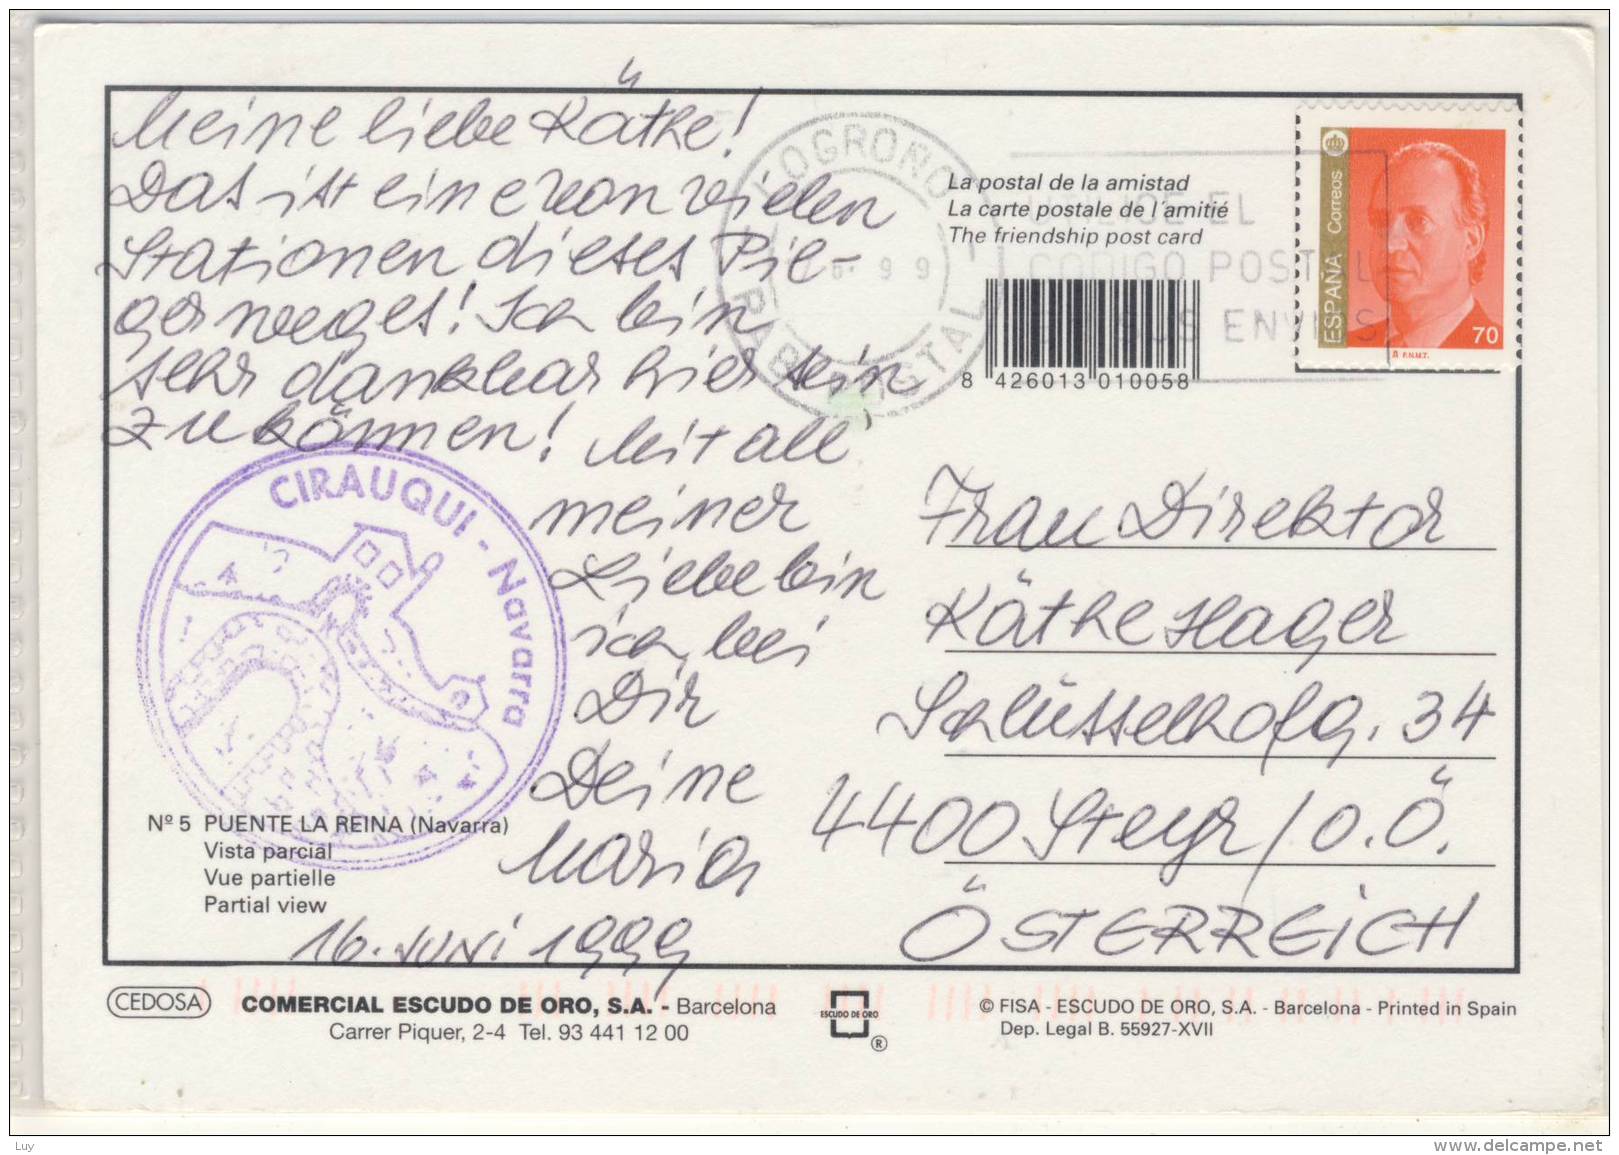 Meine liebe Käthe!
Das ist eine von vielen
Stationen dieses Pil-
gerweges! Ich bin
sehr dankbar hier sein
zu können! Mit all'
meiner
Liebe bin
ich bei
Dir
Deine
Maria
16. JUNi 1999
CIRAUQUI - Navarra
Nº 5 PUENTE LA REINA (Navarra)
Vista parcial
Vue partielle
Partial view
LOGROÑO
9 9
POSTAL
La postal de la amistad
La carte postale de l'amitié
The friendship post card
EL
CODIGO POSTAL
SUS ENVIOS
8 426013 010058
ESPAÑA Correos
70
F.N.M.T.
Frau Direktor
Käthe Hager
Schlüsselhofg. 34
4400 Steyr / O.Ö.
ÖSTERREiCH
CEDOSA
COMERCIAL ESCUDO DE ORO, S.A. - Barcelona
Carrer Piquer, 2-4 Tel. 93 441 12 00
ESCUDO DE ORO
®
© FISA - ESCUDO DE ORO, S.A. - Barcelona - Printed in Spain
Dep. Legal B. 55927-XVII
Luy
www.delcampe.net